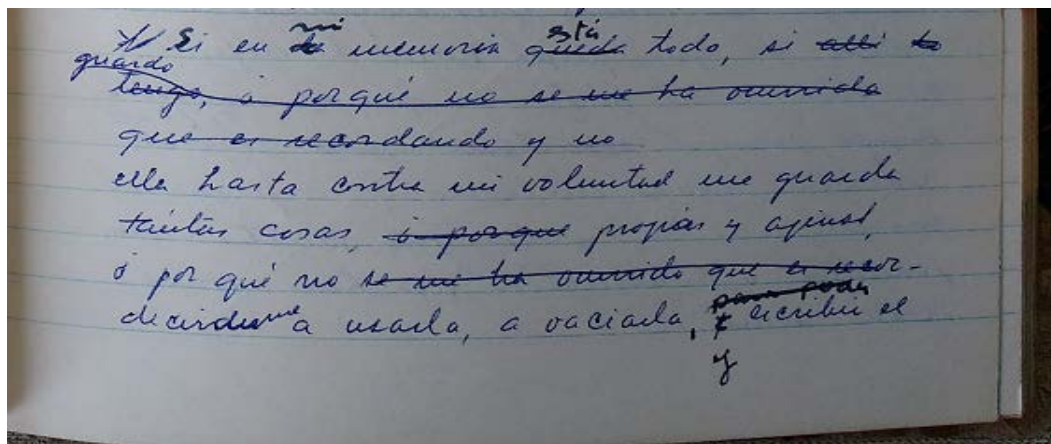 Si en la mi memoria queda está todo, si alli lo
guardo
tengo, ¿ porqué no se me ha ocurrido
que es recordando y no
ella hasta contra mi voluntad me guarda
tantas cosas, ¿ porque propias y ajenas,
¿ por qué no se me ha ocurrido que es recor-
decirdirme a usarla, a vaciarla, para poder escribir el
y